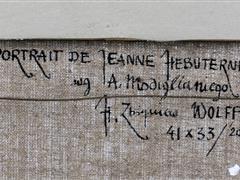 PORTRAIT DE JEANNE HEBUTERN
wg A. Modiglianiego
H. Zbigniew WOLFF
41 x 33 / 20